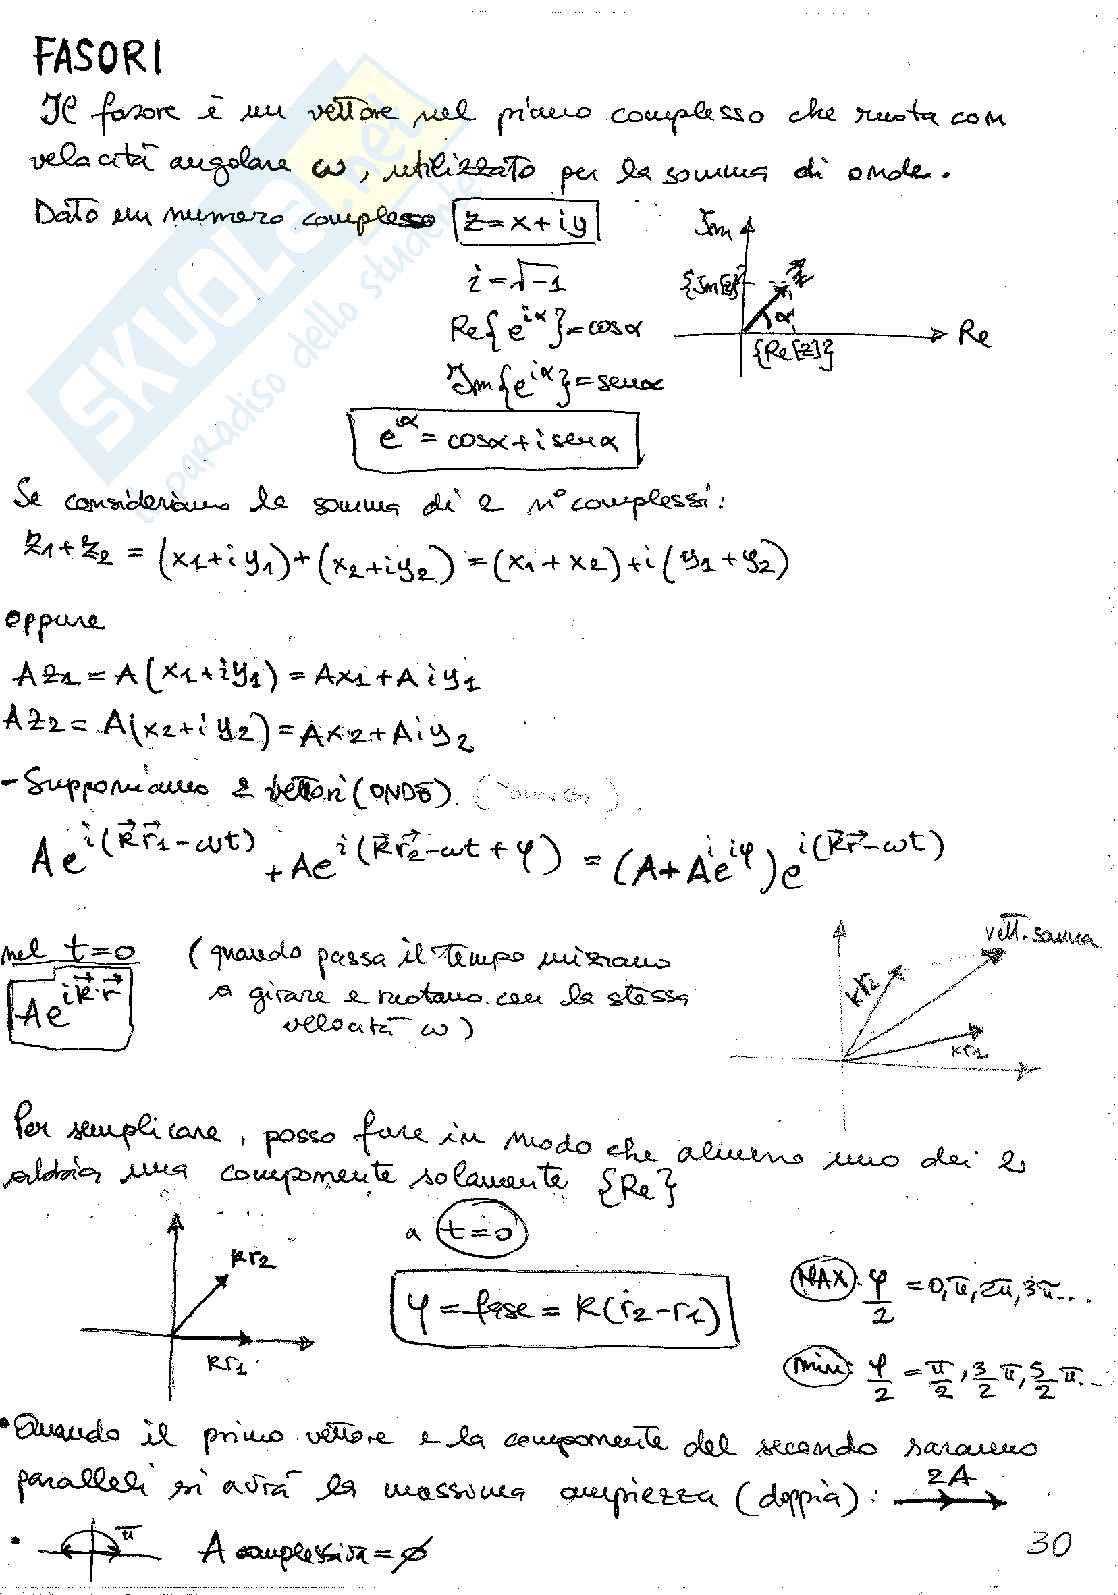 FASORI
Il fasore è un vettore nel piano complesso che ruota con
velocità angolare ω, utilizzato per la somma di onde.
Dato un numero complesso z=x+iy
Im
{Im[z]}
z
α
Re
{Re[z]}
i=√-1
Re{e^{iα}}=cosα
Im{e^{iα}}=senα
e^{iα}=cosα+i senα
Se consideriamo la somma di 2 n° complessi:
z1+z2 = (x1+iy1)+(x2+iy2)=(x1+x2)+i(y1+y2)
oppure
Az1=A(x1+iy1)=Ax1+Aiy1
Az2=A(x2+iy2)=Ax2+Aiy2
-Supponiamo 2 vettori (ONDE)
Ae^{i(k⃗r⃗1-ωt)}+Ae^{i(k⃗r⃗2-ωt+φ)}=(A+Ae^{iφ})e^{i(k⃗r⃗-ωt)}
nel t=0 (quando passa il tempo iniziano
Ae^{ik⃗·r⃗} a girare e ruotano con la stessa
velocità ω)
vett. somma
kr2
kr1
Per semplicare, posso fare in modo che almeno uno dei 2
abbia una componente solamente {Re}
a t=0
kr2
kr1
φ=fase=k(r2-r1)
MAX: φ/2 =0,π,2π,3π...
min: φ/2 =π/2,3/2π,5/2π...
•Quando il primo vettore e la componente del secondo saranno
paralleli si avrà la massima ampiezza (doppia): 2A
• π A complessiva=∅
30
SKUOLA.net
il paradiso dello studente